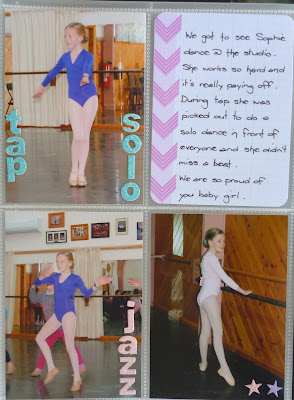 tap
solo
We got to see Sophie
dance @ the studio.
She works so hard and
it's really paying off.
During tap she was
picked out to do a
solo dance in front of
everyone and she didn't
miss a beat.
We are so proud of
you baby girl.
jazz